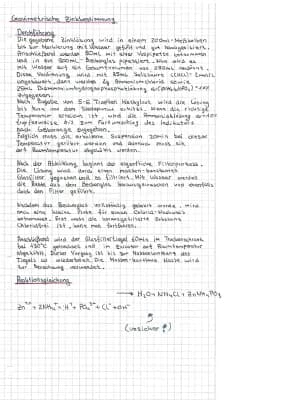 Gravimetrische Zinkbestimmung
Durchführung
Die gegebene Zinklösung wird in einem 200mL-Meßkolben
bis zur Markierung mit Wasser gefüllt und gut homogenisiert.
Anschließend werden 50mL mit einer Vollpipette entnommen
und in ein 800mL-Becherglas pipettiert. Nun wird es
mit Wasser auf ein Gesamtvolumen von
Diese Verdünnung wird mit Salzsäure
angesäuert, dann werden 4g Ammoniumchlorid sowie
25mL Diammoniumhydrogenphosphatlösung
zugegeben.
Nach Zugabe von 5-6 Tropfen Methylrot wird die Lösung
bis kurz vor dem Siedepunkt erhitzt. Wenn die richtige
Temperatur erreicht ist wird die Ammoniaklösung
tropfenweise bis zum Farbumschlag des Indikators
nach Gelborange zugegeben.
Folglich muss die erhaltene Suspension 20min bei dieser
Temperatur gerührt werden und danach muss sie
auf Raumtemperatur abgekühlt werden.
Nach der Abkühlung beginnt der eigentliche Filterprozess.
Die Lösung wird durch einen massenkonstanten
Glasfilter gegossen und so filtriert. Mit Wasser werden
die Reste aus dem Becherglas herausgewaschen und ebenfalls
durch den Filter geführt.
Nachdem das Becherglas vollständig geleert wurde, wird
noch eine kleine Probe für einen Chlorid-Nachweis
entnommen. Erst wenn die herausgefilterte Substanz
Chloridfrei ist, kann man fortfahren.
Anschließend wird der Glasfiltertiegel 60min im Trockenschrank
bei 130°C getrocknet und im Exsikkator auf Raumtemperatur
abgekühlt. Dieser Vorgang ist bis zur Massenkonstanz des
Tiegels zu wiederholen. Die Massenkonstante Masse wird
zur Berechnung verwendet.
Reaktionsgleichung
→ H₂O + NH₄Cl + ZnNH₄PO₄
Zn²⁺ + 2NH₄⁺ + H⁺ + PO₄³⁻ + Cl⁻ + OH⁻
(unsicher?)